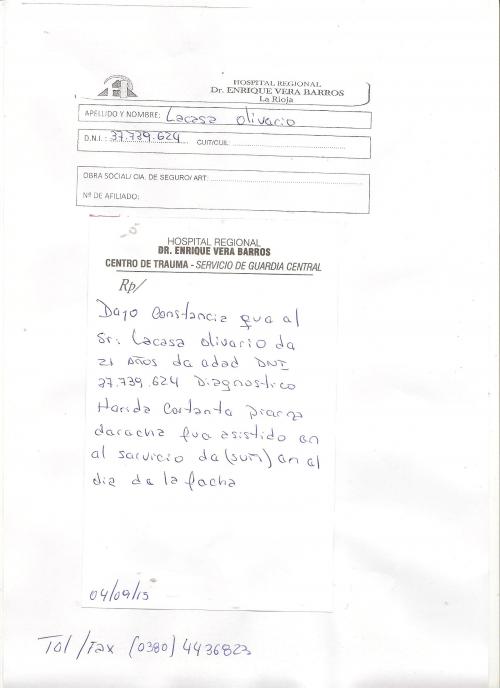 HOSPITAL REGIONAL
Dr. ENRIQUE VERA BARROS
La Rioja
APELLIDO Y NOMBRE: Lacasa olivario
D.N.I.: 37.739.624 CUIT/CUIL:
OBRA SOCIAL/ CIA. DE SEGURO/ ART:
Nº DE AFILIADO:
HOSPITAL REGIONAL
DR. ENRIQUE VERA BARROS
CENTRO DE TRAUMA - SERVICIO DE GUARDIA CENTRAL
Rp/
Dejo constancia que el
Sr: Lacasa olivario de
21 Años de edad DNI
37.739.624 Diagnostico
Herida Cortante pierna
derecha fue asistido en
el servicio de (sum) en el
dia de la fecha
04/09/15
Tel/Fax (0380) 4436823